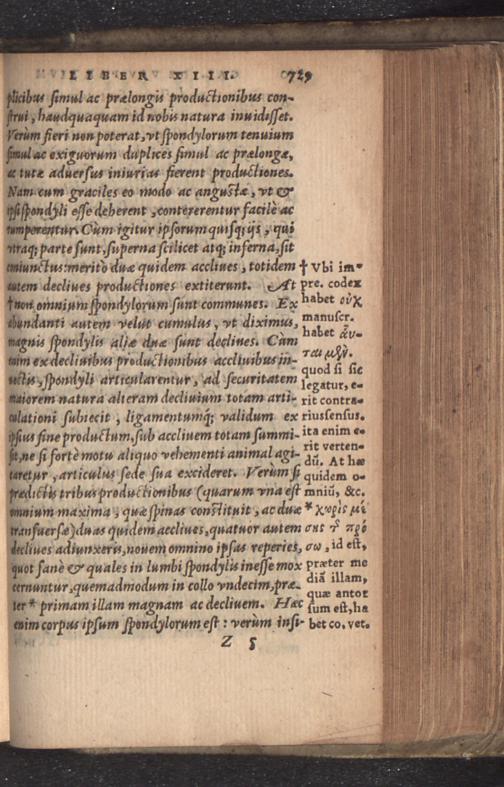 LIBER XIII. 729
plicibus simul ac prælongis productionibus con-
strui, haudquaquam id nobis natura inuidisset.
Verùm fieri non poterat, vt spondylorum tenuium
simul ac exiguorum duplices simul ac prælongæ,
ac tutæ aduersus iniurias fierent productiones.
Nam cum graciles eo modo ac angustæ, vt &
ipsi spondyli esse deberent, contererentur facilè ac
rumperentur. Cùm igitur ipsorum quisq; ijs, qui
vtraq; parte sunt, superna scilicet atq; inferna, sit
coniunctus: meritò duæ quidem accliues, totidem
autem decliues productiones extiterunt. At
†non omnium spondylorum sunt communes. Ex
abundanti autem velut cumulus, vt diximus,
magnis spondylis aliæ duæ sunt decliues. Cùm
enim ex decliuibus productionibus accliuibus in-
uectis, spondyli articularentur, ad securitatem
maiorem natura alteram decliuium totam arti-
culationi subiecit, ligamentumq; validum ex
ipsius fine productum, sub accliuem totam summi-
sit, ne si fortè motu aliquo vehementi animal agi-
taretur, articulus sede sua excideret. Verùm si
prædictis tribus productionibus (quarum vna est
omnium maxima, quæ spinas constituit, ac duæ
transuersæ) duas quidem accliues, quatuor autem
decliues adiunxeris, nouem omnino ipsas reperies,
quot sanè & quales in lumbi spondylis inesse mox
cernuntur, quemadmodum in collo vndecim, præ-
ter * primam illam magnam ac decliuem. Hæc
enim corpus ipsum spondylorum est: verùm insi-
Z 5
† Vbi im-
pre. codex
habet οὐχ
manuscr.
habet αὗ-
ται μὲν.
quod si sic
legatur, e-
rit contra-
rius sensus.
ita enim e-
rit verten-
dū. At hæ
quidem o-
mniū, &c.
* χωρὶς μέ
σης τ̃ πρό
σω, id est,
præter me
diā illam,
quæ antor
sum est, ha
bet co. vet.